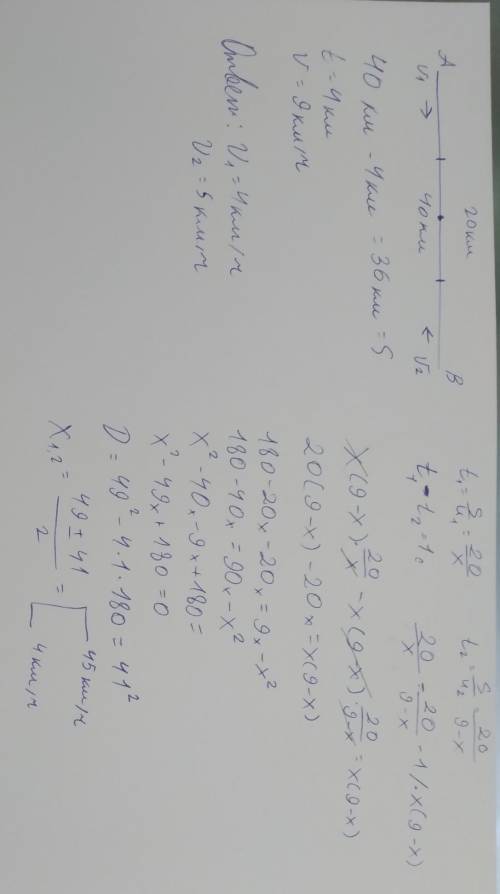 20 км
A B
v₁ → 40 км ← v₂
40 км - 4 км = 36 км = S
t = 4 км
v = 9 км/ч
Ответ: v₁ = 4 км/ч
v₂ = 5 км/ч
t₁ = S/u₁ = 20/x t₂ = S/u₂ = 20/9-x
t₁ - t₂ = 1с 20/x = 20/9-x - 1 /· x(9-x)
x(9-x) · 20/x - x(9-x) · 20/9-x = x(9-x)
20(9-x) - 20x = x(9-x)
180 - 20x - 20x = 9x - x²
180 - 40x = 90x - x²
x² - 40x - 9x + 180 =
x² - 49x + 180 = 0
D = 49² - 4·1·180 = 41²
x₁,₂ = 49 ± 41 / 2 = [ 45 км/ч
4 км/ч